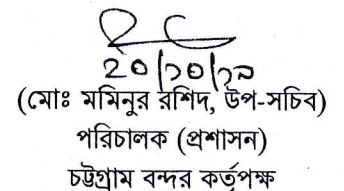 ২০/১০/১৯
(মোঃ মমিনুর রশিদ, উপ-সচিব)
পরিচালক (প্রশাসন)
চট্টগ্রাম বন্দর কর্তৃপক্ষ